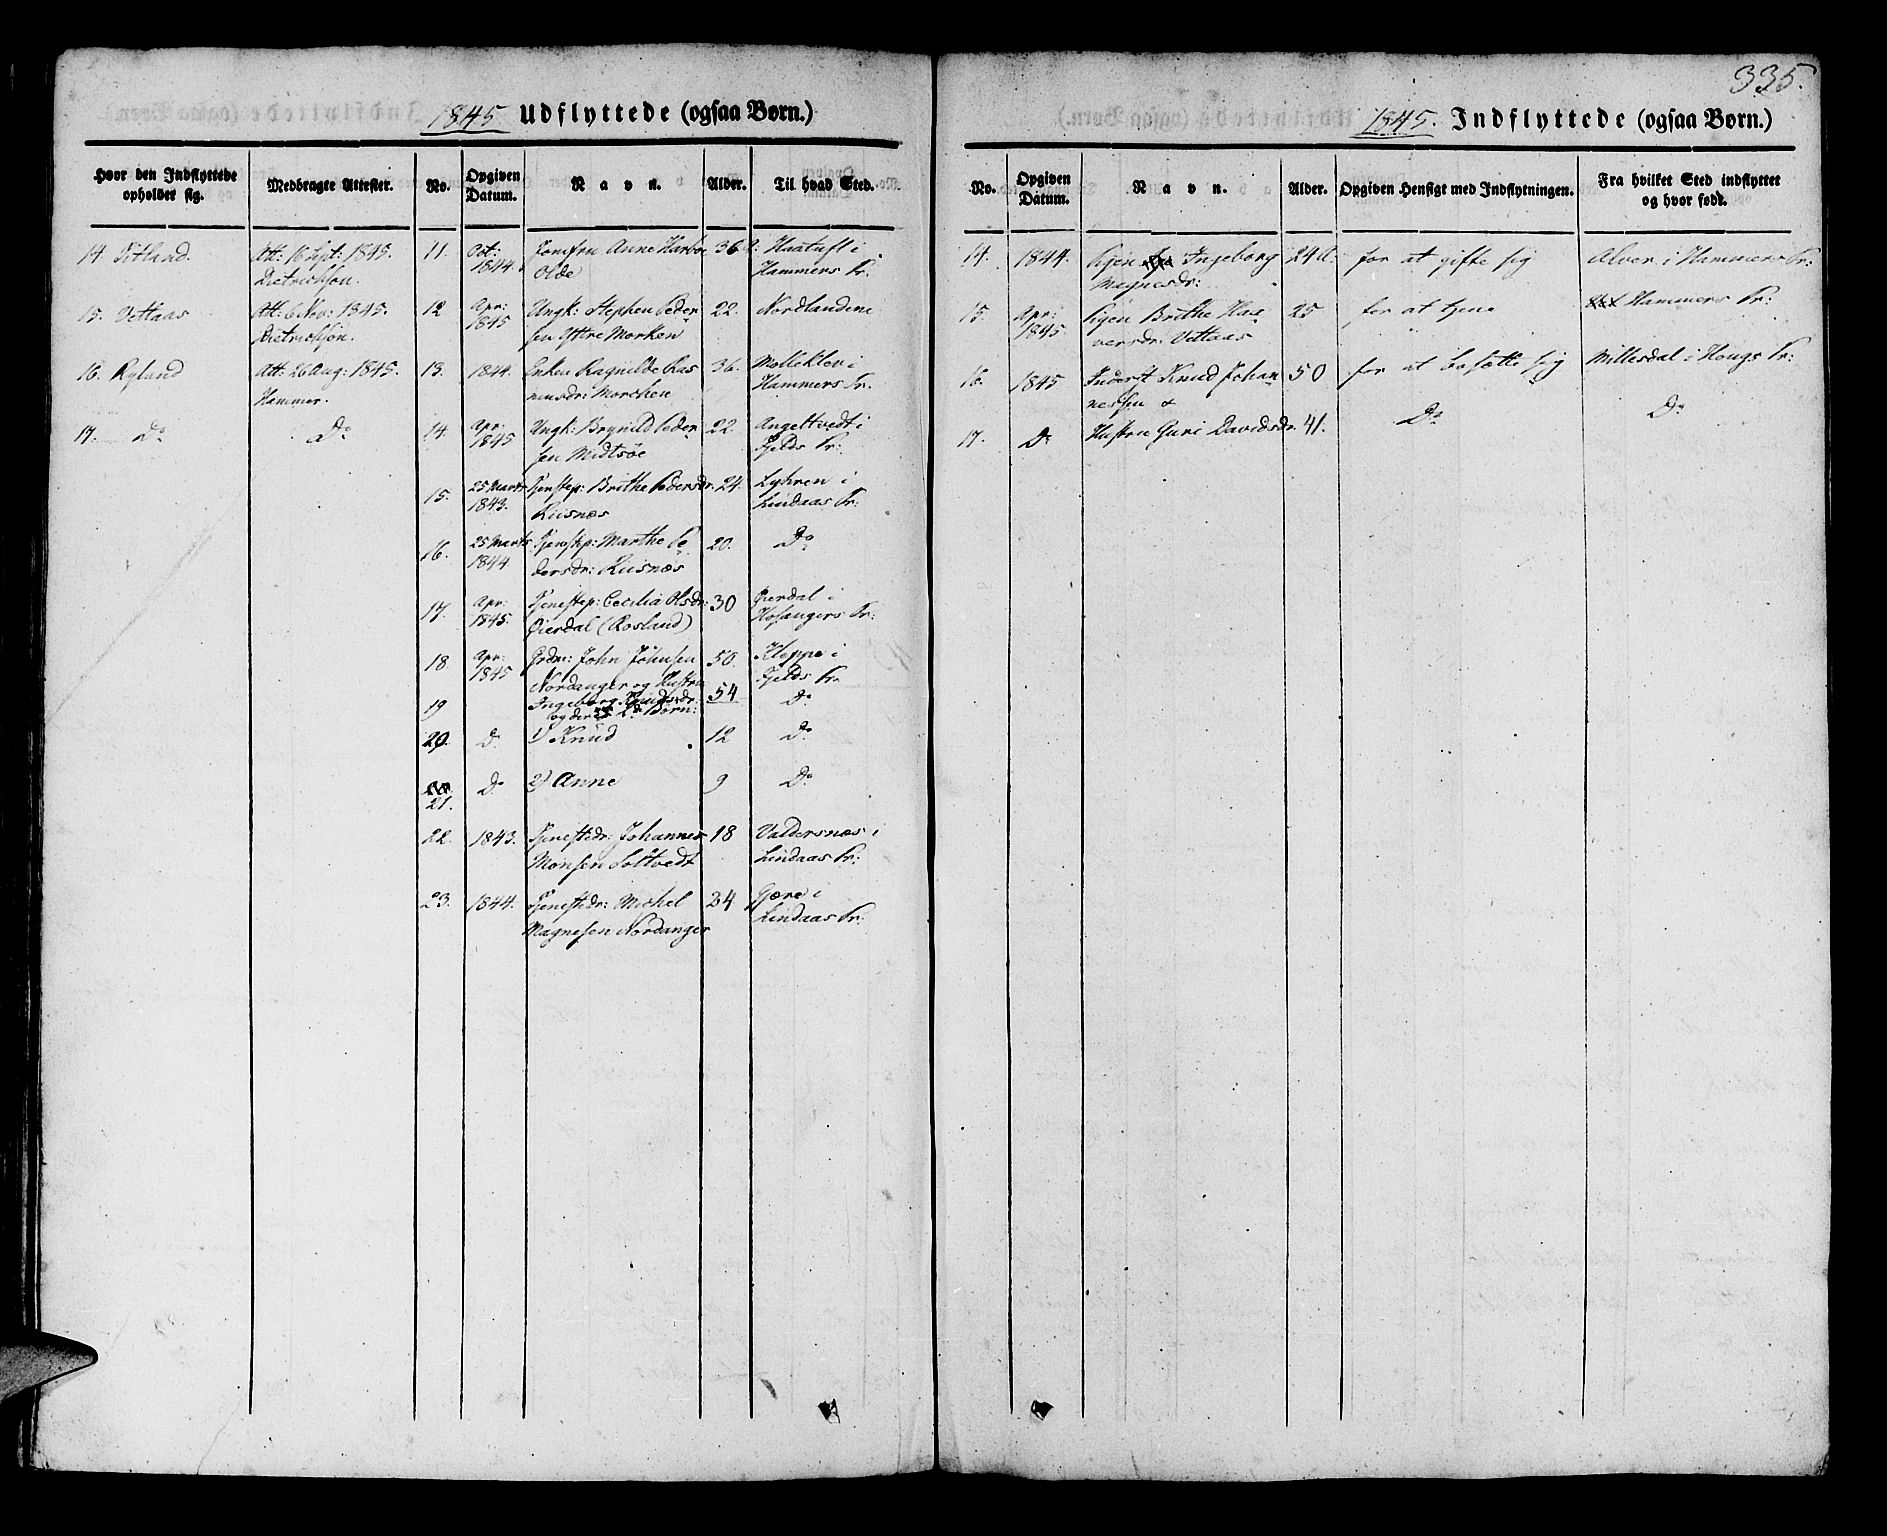 1845 Udflyttede (ogsaa Børn.)
Hvor den Indflyttede opholder sig.
Medbragte Attester.
No.
Opgiven Datum.
Navn.
Alder.
Til hvad Sted.
14. Titland.
Att: 16 Spt: 1845.
Dietrichson.
15. Vettaas
Att: 6 Nov: 1845.
Dietrichson.
16. Ryland
Att: 26 Aug: 1845.
Hammer.
17. Do
Do
11. Oct: 1844. Jomfru Anne Harboe 36
Olde
Huatuft i
Hammers Pr.
12 Apr: 1845 Ungk: Stephen Peder
sen Yttre Morken
22. Nordlandene
13. 1844. Enken Ragnilde Ras
musdr: Morchen
36. Mollekler i
Hammers Pr.
14. Apr: 1845 Ungk: Brynild Peder
sen Midtsøe
22. Angeltvedt i
Fjelds Pr:
15. 25 Marts 1843. Tjenstep: Brithe Pedersdr. 24.
Riisnæs
Lyhren i
Lindaas Pr:
16. 25 Marts 1844 Tjenstep: Marthe Pe
dersdr: Riisnæs
20. Do
17. Apr: 1845. Tjenestep: Cecilia Olsdr: 30
Øierdal (Rosland)
Øierdal i
Hosangers Pr:
18. Apr: 1845 Grdm: John Johnsen 50.
Nordanger og Hustru
Kleppe i
Fjelds Pr.
19 Ingeborg Knudsdr: 54 Do
og deres 2de Børn:
20. Do 1) Knud 12 Do
21. Do 2) Anne 9 Do
22. 1843. Tjenestedr: Johannes 18
Monsen Soltvedt
Valdersnæs i
Lindaas Pr:
23. 1844. Tjenestedr: Michel 34
Magnesen Nordanger
Gjære i
Lindaas Pr:
335.
1845. Indflyttede (ogsaa Børn.)
No.
Opgiven Datum.
Navn.
Alder.
Opgiven Hensigt med Indflytningen.
Fra hvilket Sted indflyttet og hvor født.
14. 1844. Pigen Ingeborg 24 A.
Magnesdr:
for at gifte sig
Alver i Hammers Pr:
15. Apr: 1845. Pigen Brithe Ha
versdr: Vettaas
25 for at tjene
Hammers Pr:
16. 1845 Inderst Knud Johan 50
nessen &
for at bosætte sig
Millesdal i Hougs Pr:
17. Do Hustru Guri Davidsdr. 41. Do Do